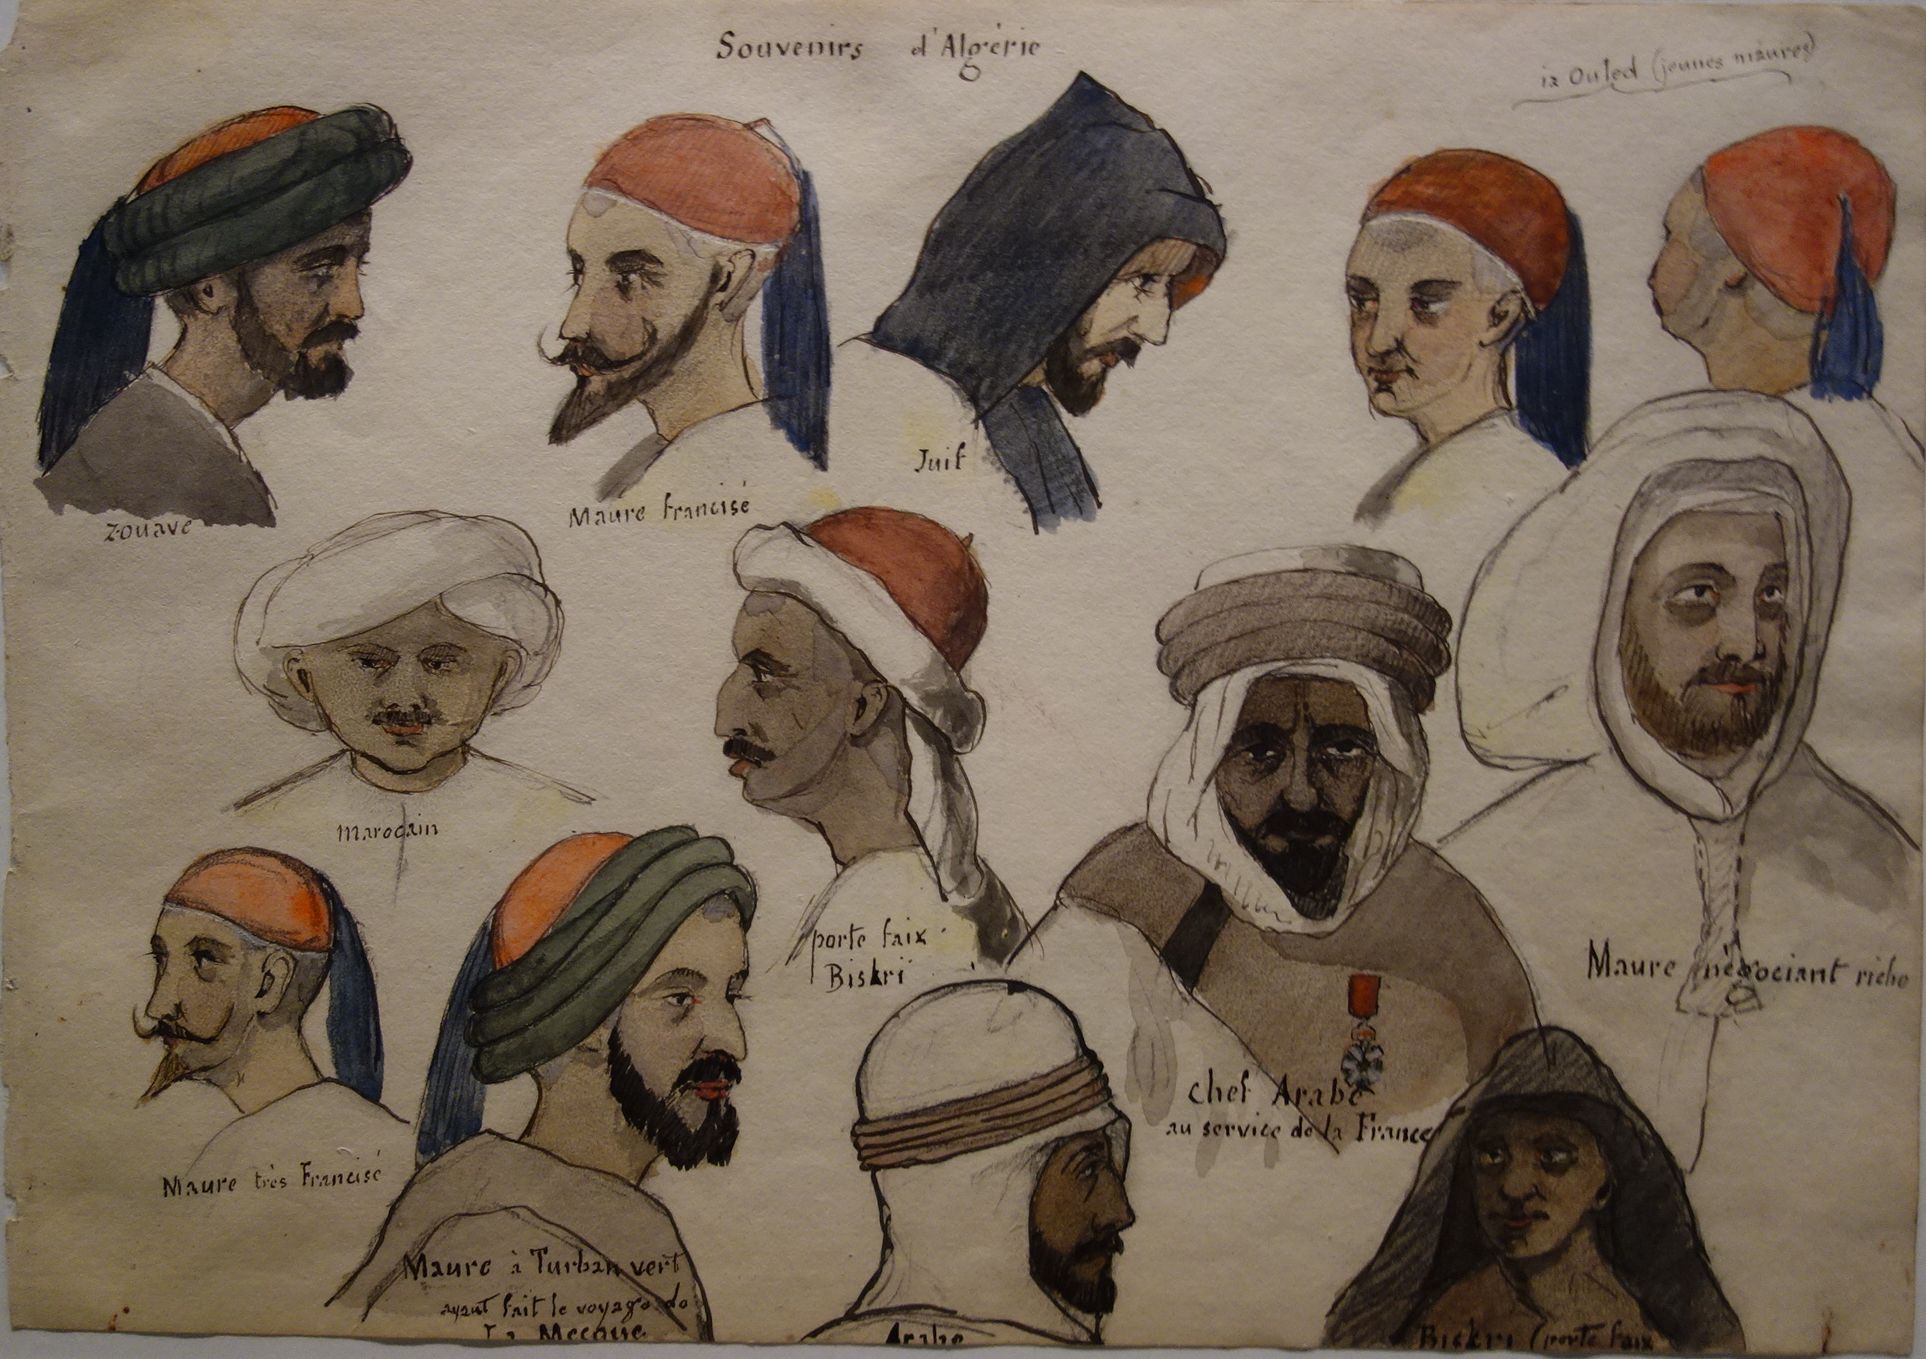 Souvenirs d'Algérie
Ouled (jeunes maures)
Zouave
Maure francisé
Juif
Marocain
porte faix
Biskri
Maure négociant riche
chef Arabe
au service de la France
Maure très Francisé
Maure à Turban vert
ayant fait le voyage de
La Mecque
Arabe
Biskri (porte faix